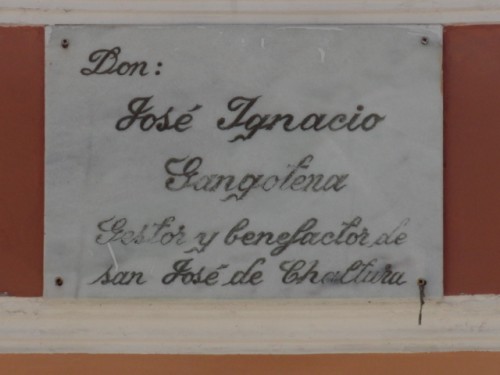 Don:
José Ignacio
Gangotena
Gestor y benefactor de
san José de Chaltura